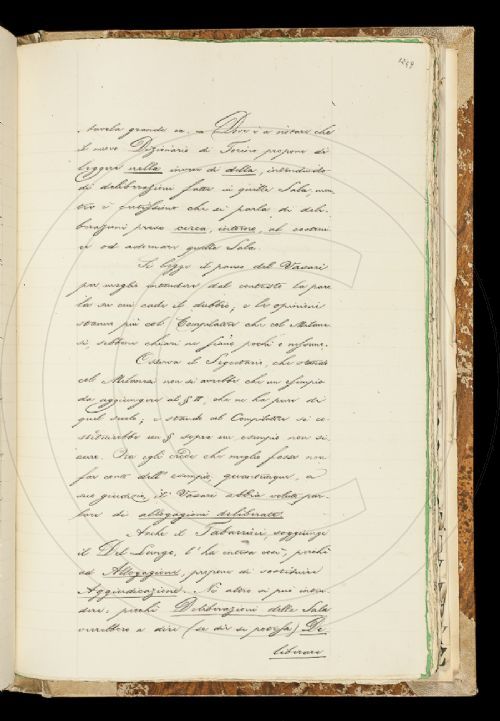 tavola grande ec. Dove è a notare che
il nuovo Dizionario di Torino propone di
leggere nella invece di della, intendendo
di deliberazioni fatte in quella Sala, men
tre è certissimo che si parla di deli-
berazioni prese circa, intorno, al costrui-
re od adornare quella Sala.
Si legge il passo del Vasari
per meglio intendere dal contesto la paro
la su cui cade il dubbio; e le opinioni
stanno più col Compilatore che col Milane
si, sebbene chiari ne siano pochi e nessuno.
Osserva il Segretario, che stando
col Milanesi non si avrebbe che un esempio
da aggiungere al § II, che ne ha pure di
quel secolo; e stando al Compilatore si co-
stituirebbe un § sopra un esempio non si-
curo. Per egli crede che meglio fosse non
far conto dell'esempio, quantunque, a
suo giudizio, il Vasari abbia voluto par-
lare di allogagioni deliberate.
Anche il Tabarrini, soggiunge
il Del Lungo, l'ha intesa così, perchè
ad Allogagione, propone di sostituire
Aggiudicazione. Nè altro si può inten-
dere, perchè Deliberazioni della Sala
verrebbero a dire (se dir si potesse) De
liberare